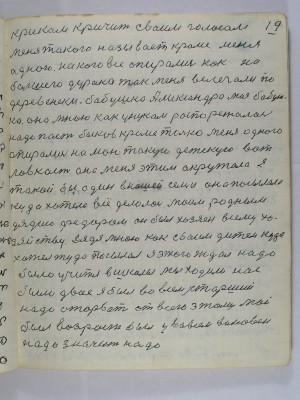 19
крикам кричит сваим голосам
меня такого называет краме меня
одного. на кого все опирались как на
болшего дурака так меня величали по
деревеники. бабушка Аликсандра мая бабуш
ка. она мною как унукам распарежалася
нада пасти бычков краме толко меня одного
опирались на мои такую детскую вот
ловкасть она меня этим окружала я
такой был один в нашей семи она посылала
куда хотела всё делалося моим родным
дядию федарам он был хозяен всему хо-
зяйству ведя мною как сваим дитем куда
хотел туда посылал я этого ждал нада
было учится в школи мы ходили нас
было двое я был во всем старший
надо оторват от всего этому мой
был возраст был у вовсем виновен
надо значит надо